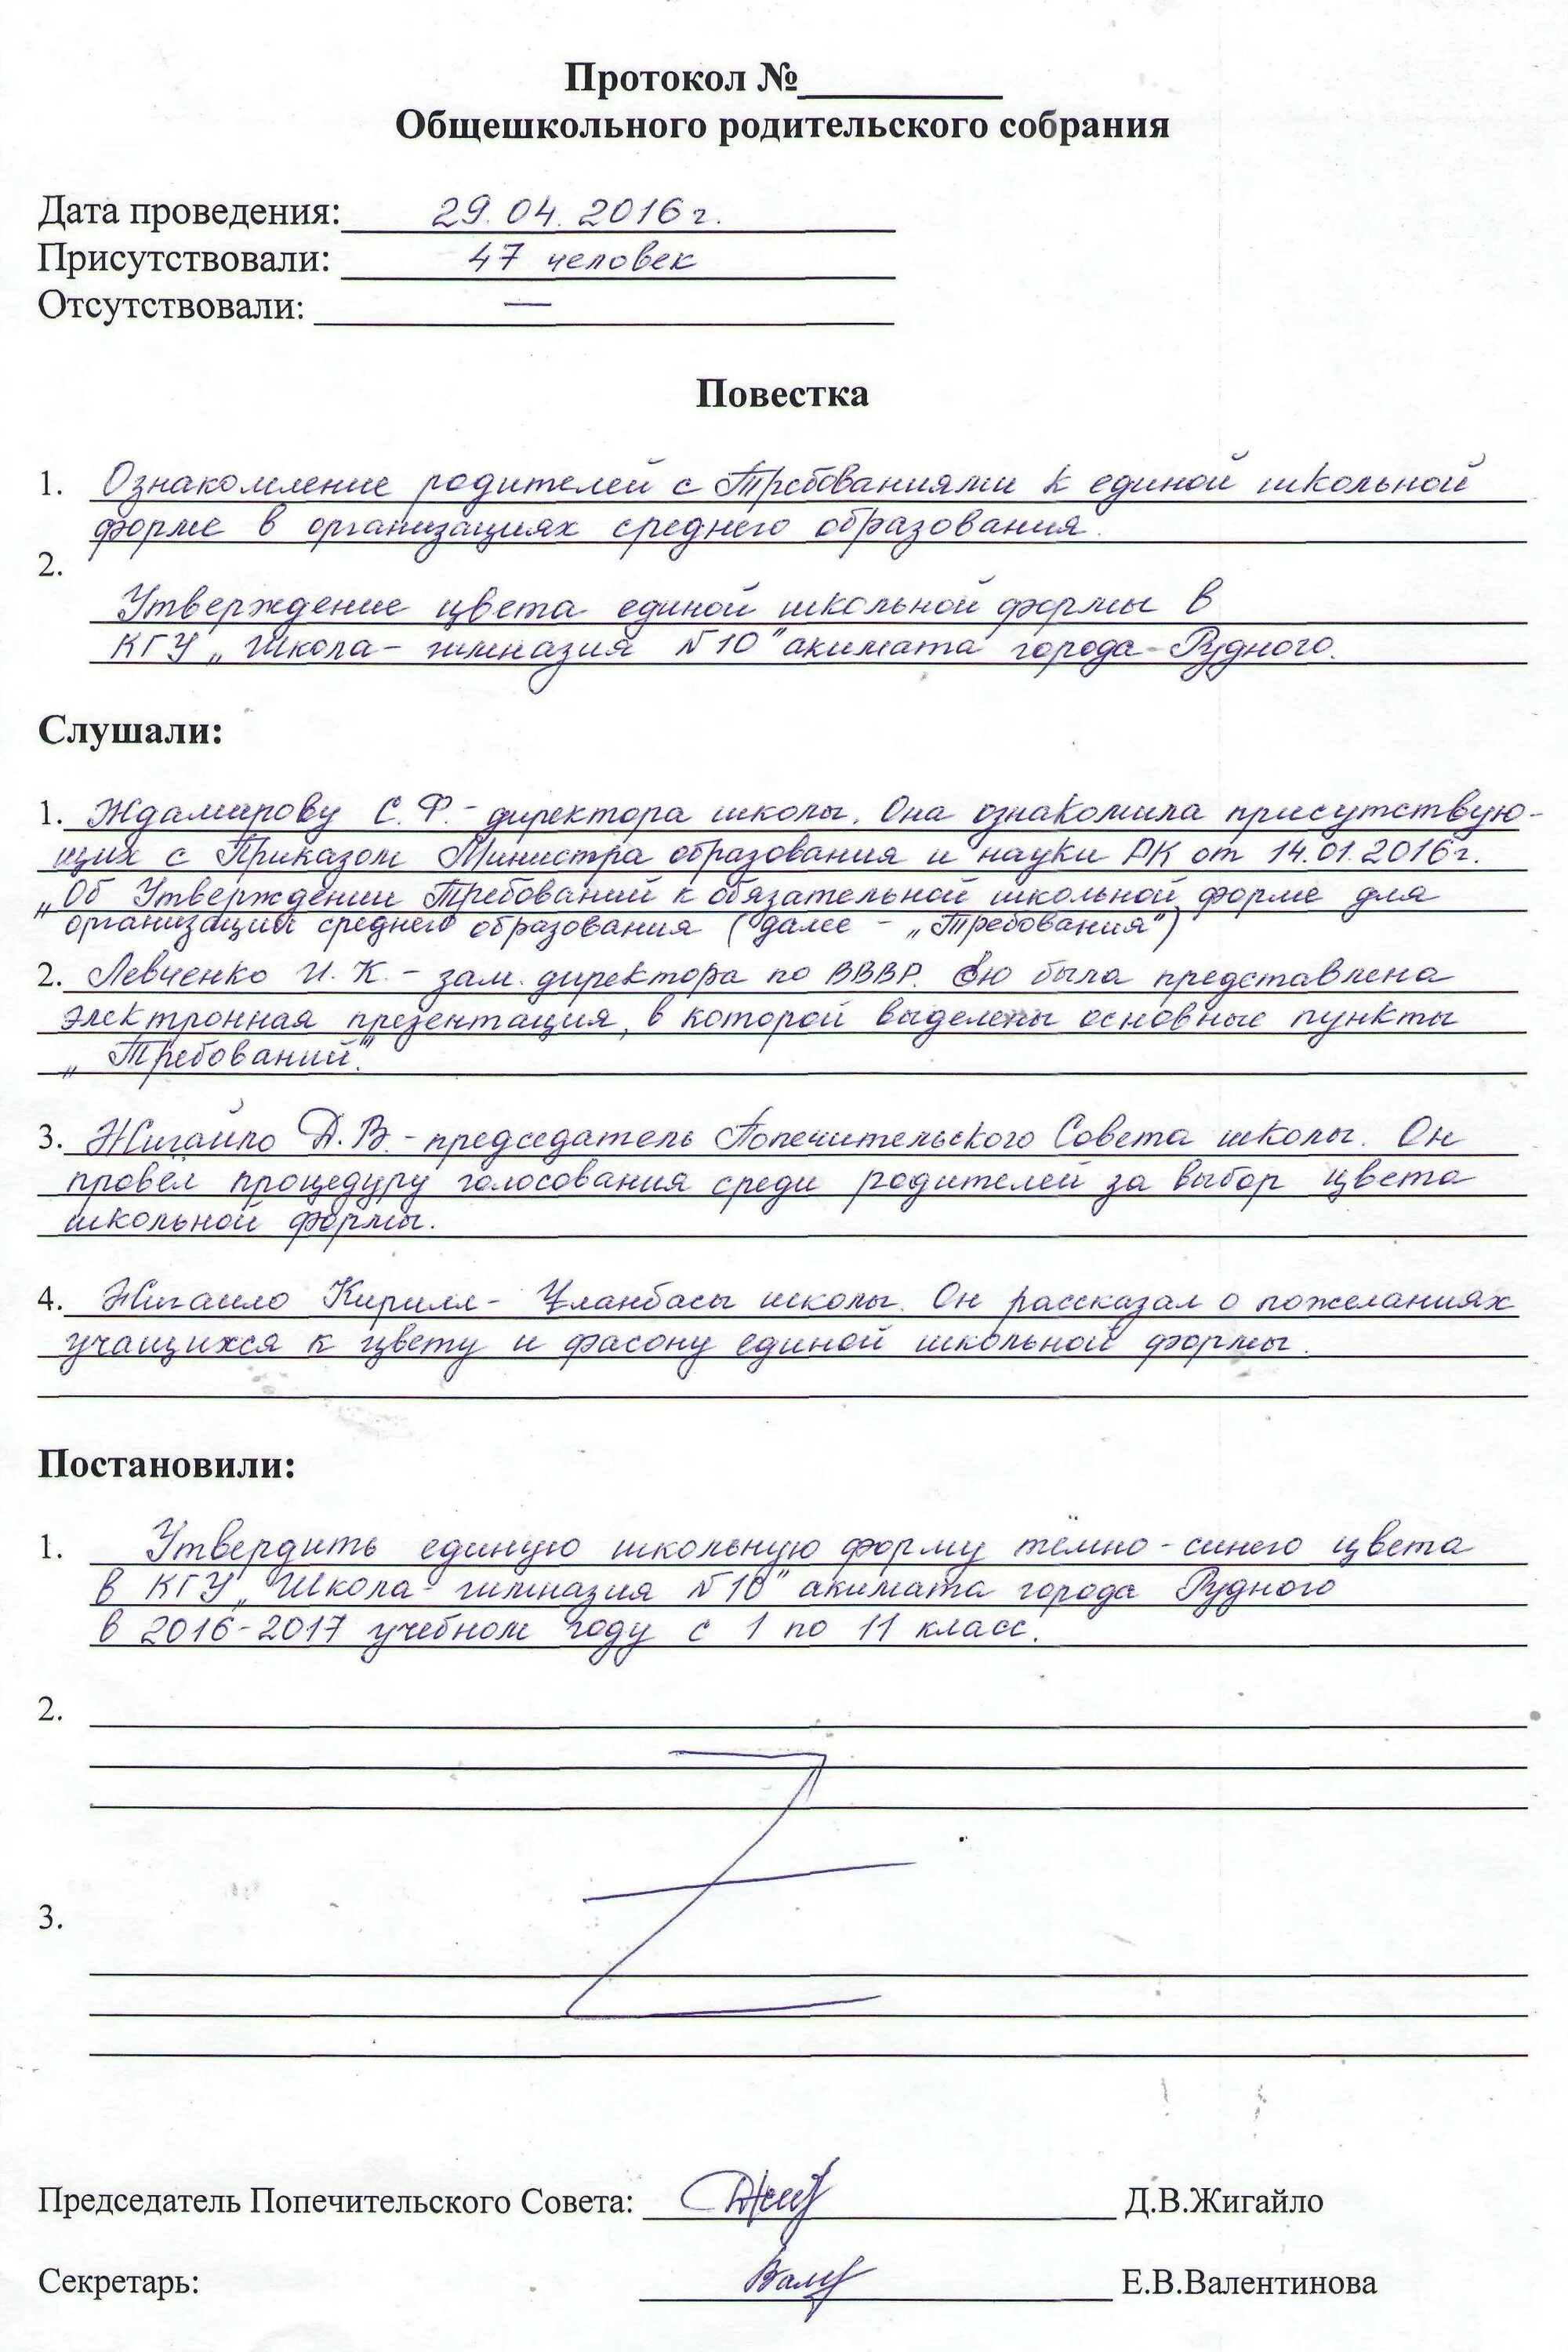 Протокол №__________
Общешкольного родительского собрания
Дата проведения: 29.04.2016г.
Присутствовали: 47 человек
Отсутствовали: —
Повестка
1. Ознакомление родителей с Требованиями к единой школьной
форме в организациях среднего образования.
2.
Утверждение цвета единой школьной формы в
КГУ „Школа-гимназия №10" акимата города Рудного.
Слушали:
1. Ждамирову С.Ф. - директора школы. Она ознакомила присутствую-
щих с Приказом Министра образования и науки РК от 14.01.2016г.
„Об Утверждении Требований к обязательной школьной форме для
организаций среднего образования (далее - „Требования")
2. Левченко И.К. - зам. директора по ВВВР. Ею была представлена
электронная презентация, в которой выделены основные пункты
„Требований".
3. Жигайло Д.В. - председатель Попечительского Совета школы. Он
провёл процедуру голосования среди родителей за выбор цвета
школьной формы.
4. Жигайло Кирилл - Ұланбасы школы. Он рассказал о пожеланиях
учащихся к цвету и фасону единой школьной формы.
Постановили:
1. Утвердить единую школьную форму тёмно-синего цвета
в КГУ „Школа-гимназия №10" акимата города Рудного
в 2016-2017 учебном году с 1 по 11 класс.
2.
3.
Председатель Попечительского Совета: Д.В.Жигайло
Секретарь: Е.В.Валентинова